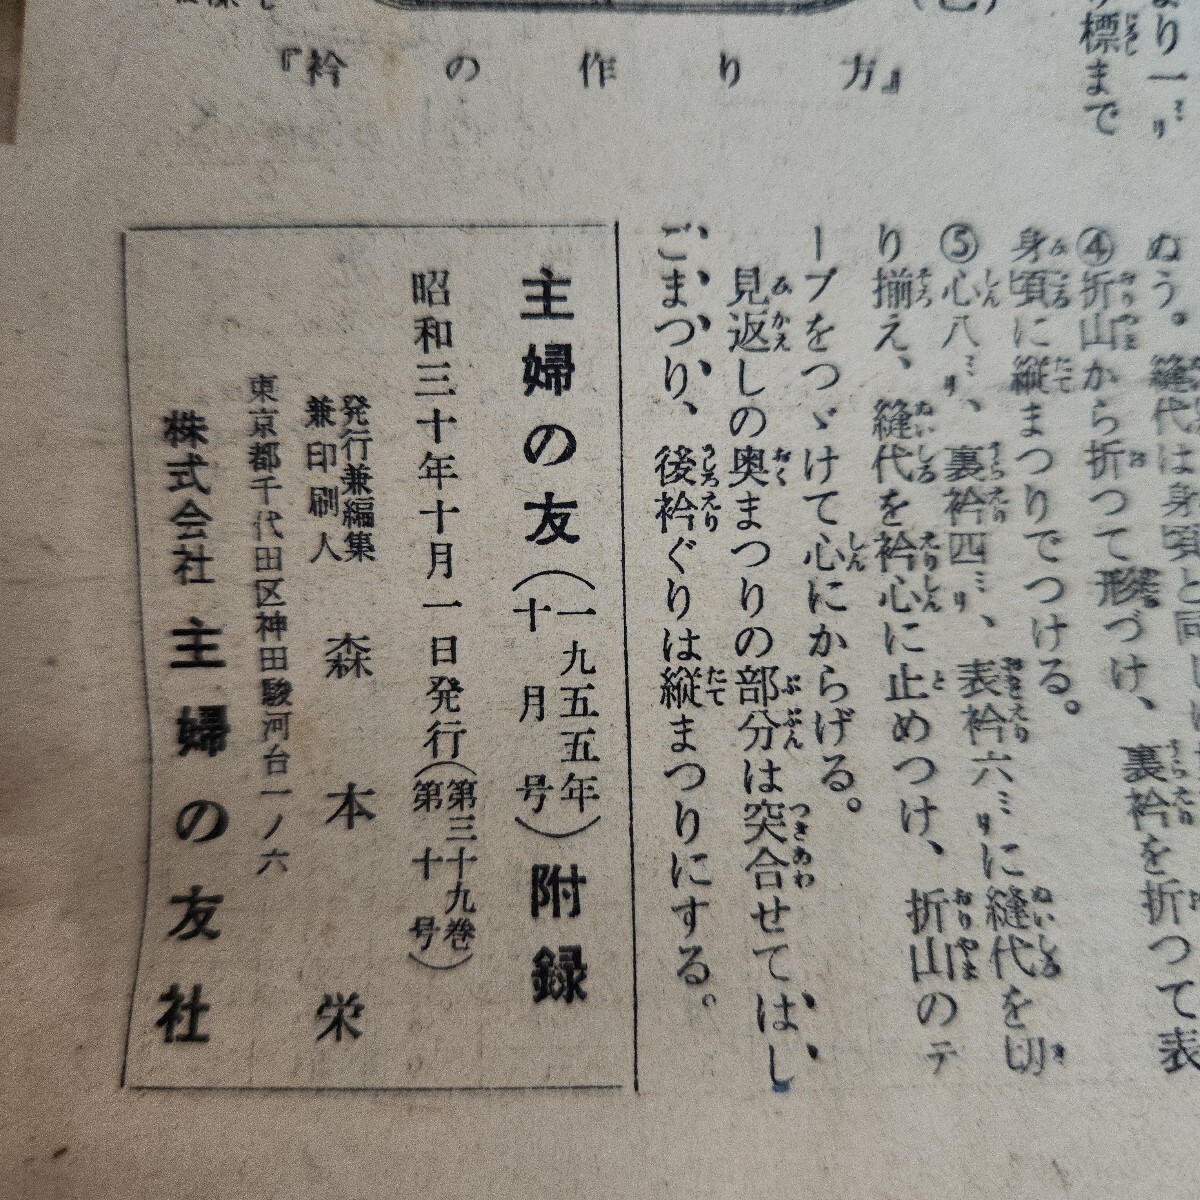 『衿の作り方』
より一ミリ
標まで
ぬう。縫代は身頃と同じ
④折山から折つて形づけ、裏衿を折つて表
身頃に縦まつりでつける。
⑤心八ミリ、裏衿四ミリ、表衿六ミリに縫代を切
り揃え、縫代を衿心に止めつけ、折山のテ
ープをつゞけて心にからげる。
見返しの奥まつりの部分は突合せてはし
ごまつり、後衿ぐりは縦まつりにする。
主婦の友(一九五五年十月号)附録
昭和三十年十月一日発行(第三十九巻第十号)
発行兼編集兼印刷人 森本栄
東京都千代田区神田駿河台一ノ六
株式会社主婦の友社